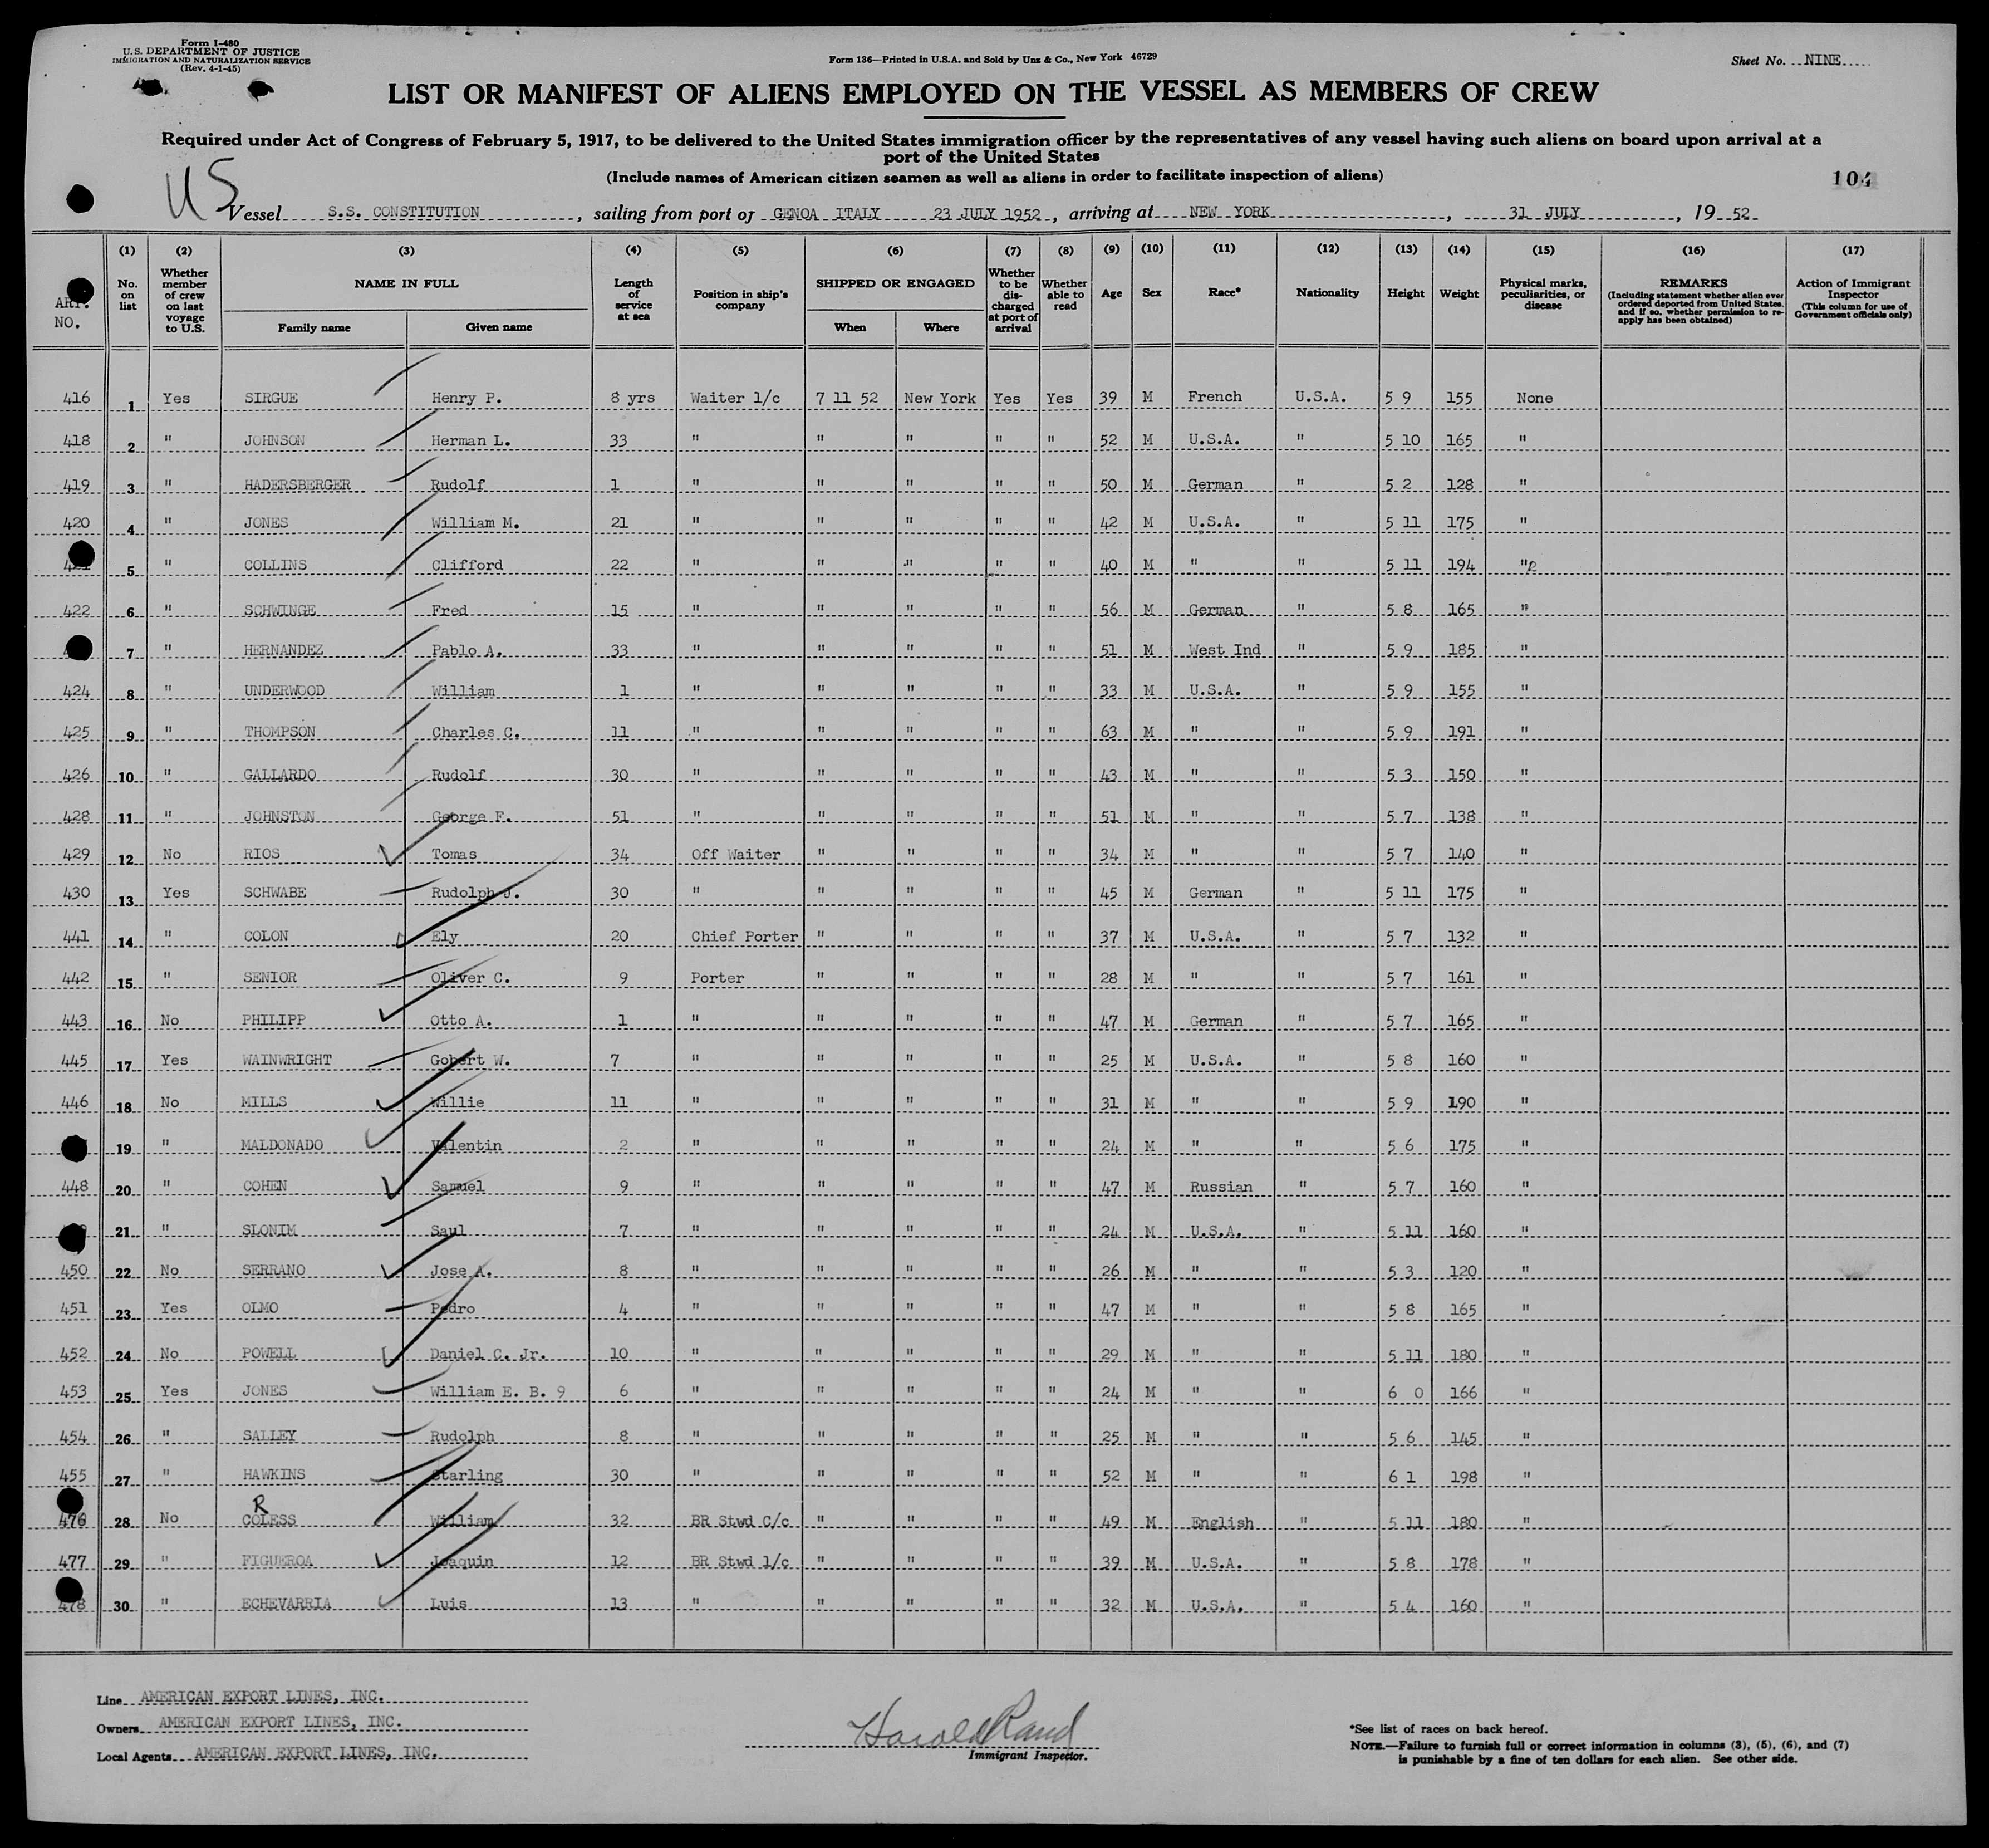 Form I-480
U.S. DEPARTMENT OF JUSTICE
IMMIGRATION AND NATURALIZATION SERVICE
(Rev. 4-1-45)
Form 136—Printed in U.S.A. and Sold by Unz & Co., New York 46729
Sheet No. NINE
LIST OR MANIFEST OF ALIENS EMPLOYED ON THE VESSEL AS MEMBERS OF CREW
Required under Act of Congress of February 5, 1917, to be delivered to the United States immigration officer by the representatives of any vessel having such aliens on board upon arrival at a
port of the United States
(Include names of American citizen seamen as well as aliens in order to facilitate inspection of aliens)
104
US
Vessel S.S. CONSTITUTION, sailing from port of GENOA ITALY 23 JULY 1952, arriving at NEW YORK, 31 JULY, 19 52
(1) (2) (3) (4) (5) (6) (7) (8) (9) (10) (11) (12) (13) (14) (15) (16) (17)
ART. NO.
No. on list
Whether member of crew on last voyage to U.S.
NAME IN FULL
Family name
Given name
Length of service at sea
Position in ship's company
SHIPPED OR ENGAGED
When
Where
Whether to be discharged at port of arrival
Whether able to read
Age
Sex
Race*
Nationality
Height
Weight
Physical marks, peculiarities, or disease
REMARKS
(Including statement whether alien ever ordered deported from United States, and if so, whether permission to reapply has been obtained)
Action of Immigrant Inspector
(This column for use of Government officials only)
416 1 Yes SIRGUE Henry P. 8 yrs Waiter 1/c 7 11 52 New York Yes Yes 39 M French U.S.A. 5 9 155 None
418 2 " JOHNSON Herman L. 33 " " " " " 52 M U.S.A. " 5 10 165 "
419 3 " HADERSBERGER Rudolf 1 " " " " " 50 M German " 5 2 128 "
420 4 " JONES William M. 21 " " " " " 42 M U.S.A. " 5 11 175 "
5 " COLLINS Clifford 22 " " " " " 40 M " " 5 11 194 "
422 6 " SCHWINGE Fred 15 " " " " " 56 M German " 5 8 165 "
7 " HERNANDEZ Pablo A. 33 " " " " " 51 M West Ind " 5 9 185 "
424 8 " UNDERWOOD William 1 " " " " " 33 M U.S.A. " 5 9 155 "
425 9 " THOMPSON Charles C. 11 " " " " " 63 M " " 5 9 191 "
426 10 " GALLARDO Rudolf 30 " " " " " 43 M " " 5 3 150 "
428 11 " JOHNSTON George F. 51 " " " " " 51 M " " 5 7 138 "
429 12 No RIOS Tomas 34 Off Waiter " " " " 34 M " " 5 7 140 "
430 13 Yes SCHWABE Rudolph J. 30 " " " " " 45 M German " 5 11 175 "
441 14 " COLON Ely 20 Chief Porter " " " " 37 M U.S.A. " 5 7 132 "
442 15 " SENIOR Oliver C. 9 Porter " " " " 28 M " " 5 7 161 "
443 16 No PHILIPP Otto A. 1 " " " " " 47 M German " 5 7 165 "
445 17 Yes WAINWRIGHT Gobert W. 7 " " " " " 25 M U.S.A. " 5 8 160 "
446 18 No MILLS Willie 11 " " " " " 31 M " " 5 9 190 "
19 " MALDONADO Valentin 2 " " " " " 24 M " " 5 6 175 "
448 20 " COHEN Samuel 9 " " " " " 47 M Russian " 5 7 160 "
21 " SLONIM Saul 7 " " " " " 24 M U.S.A. " 5 11 160 "
450 22 No SERRANO Jose A. 8 " " " " " 26 M " " 5 3 120 "
451 23 Yes OLMO Pedro 4 " " " " " 47 M " " 5 8 165 "
452 24 No POWELL Daniel C. Jr. 10 " " " " " 29 M " " 5 11 180 "
453 25 Yes JONES William E. B. 9 6 " " " " " 24 M " " 6 0 166 "
454 26 " SALLEY Rudolph 8 " " " " " 25 M " " 5 6 145 "
455 27 " HAWKINS Starling 30 " " " " " 52 M " " 6 1 198 "
R
476 28 No COLESS William 32 BR Stwd C/c " " " " 49 M English " 5 11 180 "
477 29 " FIGUEROA Joaquin 12 BR Stwd 1/c " " " " 39 M U.S.A. " 5 8 178 "
478 30 " ECHEVARRIA Luis 13 " " " " " 32 M U.S.A. " 5 4 160 "
Line AMERICAN EXPORT LINES, INC.
Owners AMERICAN EXPORT LINES, INC.
Local Agents AMERICAN EXPORT LINES, INC.
Harold Rand
Immigrant Inspector.
*See list of races on back hereof.
NOTE.—Failure to furnish full or correct information in columns (3), (5), (6), and (7)
is punishable by a fine of ten dollars for each alien. See other side.